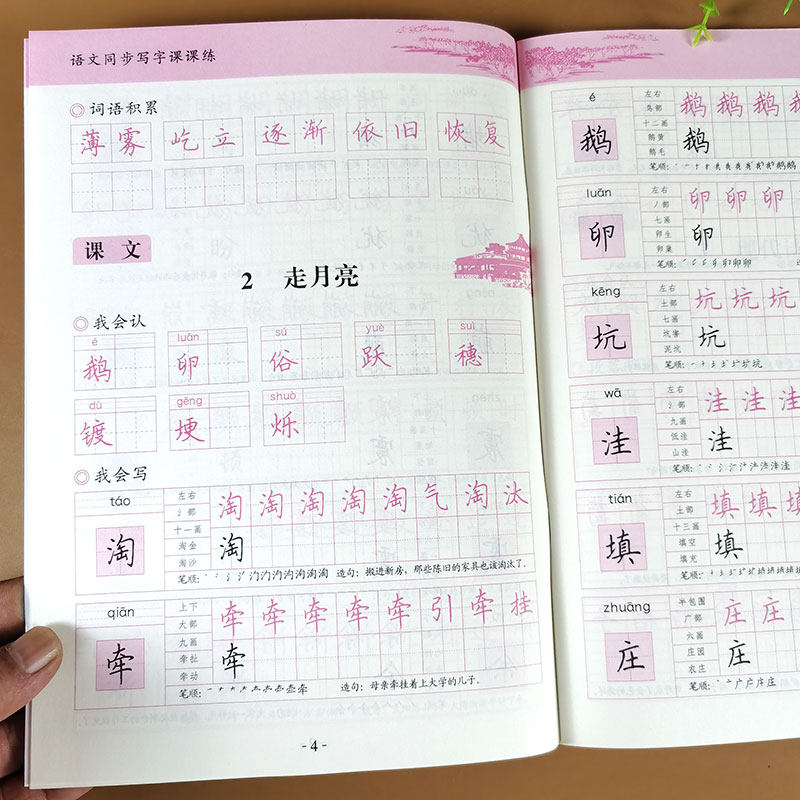 语文同步写字课课练
◎词语积累
薄雾 屹立 逐渐 依旧 恢复
课文
2 走月亮
◎我会认
é luǎn sú yuè suì
鹅 卵 俗 跃 穗
dù gěng shuò
镀 埂 烁
◎我会写
táo
淘
左右
氵部
十一画
淘金
淘沙
淘淘淘淘淘气淘汰
淘
笔顺:
造句：搬进新房，那些陈旧的家具也该淘汰了。
qiān
牵
上下
大部
九画
牵扯
牵动
牵牵牵牵牵引牵挂
牵
笔顺:
造句：母亲牵挂着上大学的儿子。
- 4 -
é
鹅
左右
鸟部
十二画
鹅黄
鹅毛
鹅鹅鹅鹅
鹅
笔顺:
luǎn
卵
左右
丿部
七画
卵生
卵巢
卵卵卵
卵
笔顺:
kēng
坑
左右
土部
七画
坑害
泥坑
坑坑坑
坑
笔顺:
wā
洼
左右
氵部
九画
低洼
山洼
洼洼洼
洼
笔顺:
tián
填
左右
土部
十三画
填空
填充
填填填
填
笔顺:
zhuāng
庄
半包围
广部
六画
庄园
农庄
庄庄
庄
笔顺: